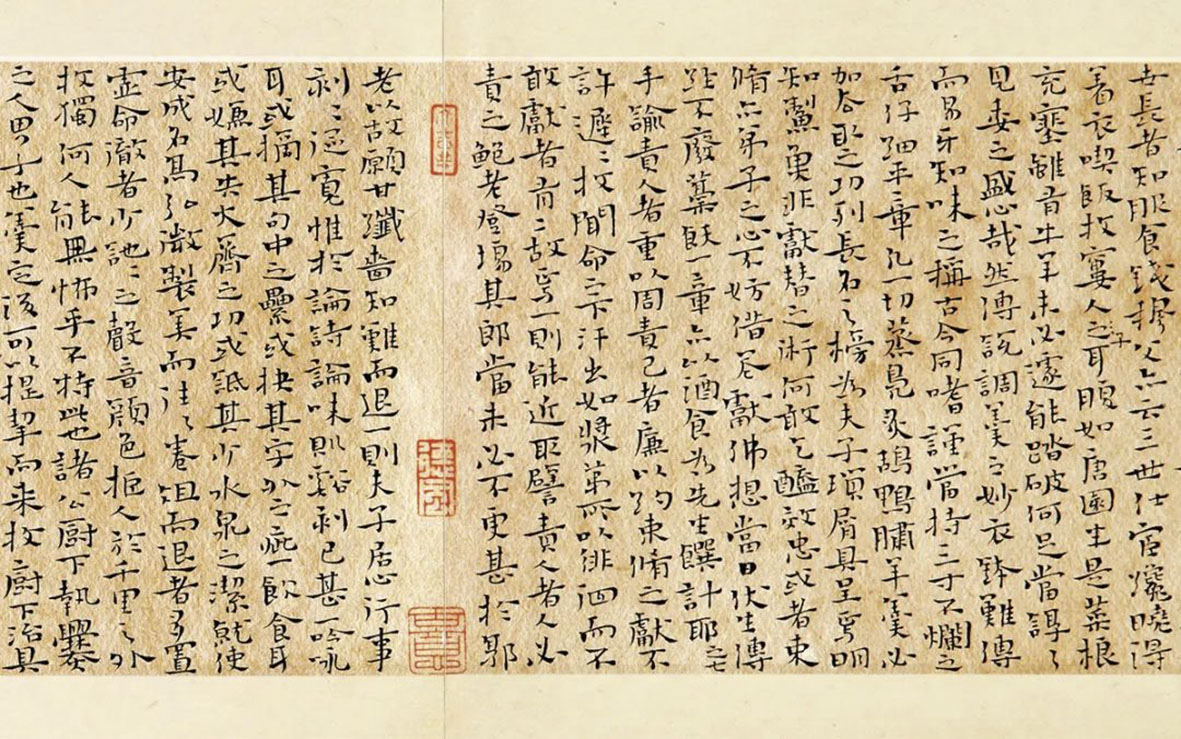 世長者知服食錢穆父亦云三世仕宦纔曉得
著衣喫飯枚寠人之子耳腹如唐園生是菜根
充塞雖有牛羊未必遽能踏破何足當諄〻
見委之盛心哉然傅說調羹之妙衣鉢難傳
而易牙知味之稱古今同嗜謹當持三寸不爛之
舌仔細平章凡一切蒸鳧炙鴰鴨臇羊羹必
加之功列長名之榜為夫子瑣屑具呈焉明
知魚非獻替之術何敢乞醯效忠或者束
脩亦弟子之心不妨借花獻佛想當日伏生傳
經不廢藁飫一章亦以酒食為先生饌計耶
手諭責人者重以周責己者廉以約束脩之獻不
許遲〻枚聞命之下汗出如漿第所以徘徊而不
敢獻者有二故焉一則能近取譬責人者人必
責之鮑老登場其郎當未必不更甚於郭
老以故願甘纖嗇知難而退一則夫子居心行事
刻〻逼寬惟於論詩論味則谿刻已甚一吟詠
耳或摘其句中之纍或抉其字外之疵一飲食耳
或嫌其失火齊之功或詆其少水泉之潔就使
安成名馬弘徽製羹而往〻卷俎而退者多置
壺命澈者少訑〻之聲音顏色拒人於千里之外
枚獨何人能無怖乎不特此也諸公廚下執爨
之人男子也羹定後可以提挈而來枚廚下治具